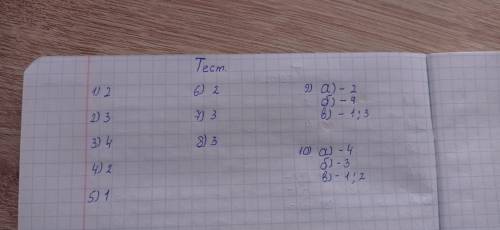 Тест.
1) 2
2) 3
3) 4
4) 2
5) 1
6) 2
7) 3
8) 3
9) а) - 2
б) - 4
в) - 1; 3
10) а) - 4
б) - 3
в) - 1; 2